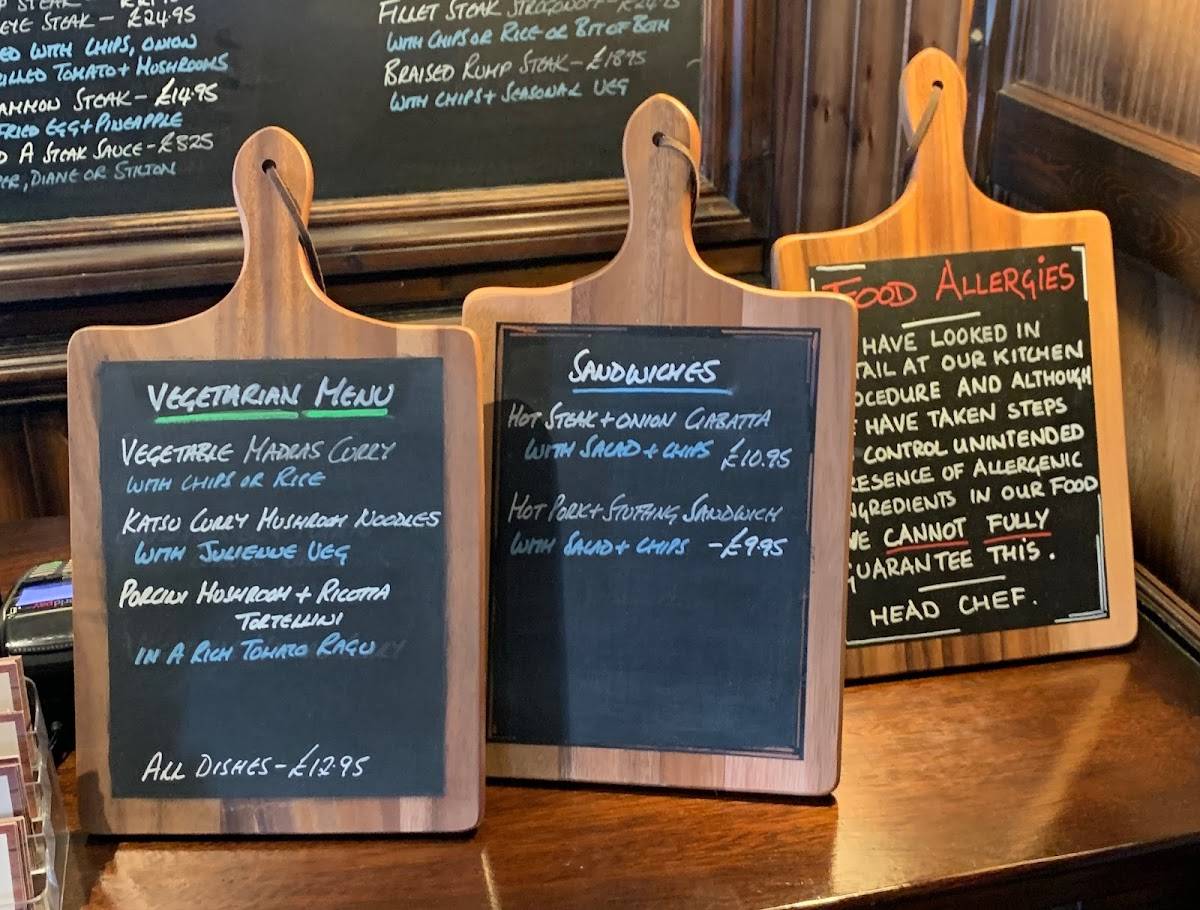 STEAK
EYE STEAK - £24.95
ED WITH CHIPS, ONION
RILLED TOMATO + MUSHROOMS
AMMON STEAK - £14.95
FRIED EGG + PINEAPPLE
D A STEAK SAUCE - £3.25
PER, DIANE OR STILTON
FILLET STEAK STROGONOFF -
WITH CHIPS OR RICE OR BIT OF BOTH
BRAISED RUMP STEAK - £18.95
WITH CHIPS + SEASONAL VEG
VEGETARIAN MENU
VEGETABLE MADRAS CURRY
WITH CHIPS OR RICE
KATSU CURRY MUSHROOM NOODLES
WITH JULIENNE VEG
PORCINI MUSHROOM + RICOTTA
TORTELLINI
IN A RICH TOMATO RAGU
ALL DISHES - £12.95
SANDWICHES
HOT STEAK + ONION CIABATTA
WITH SALAD + CHIPS £10.95
HOT PORK + STUFFING SANDWICH
WITH SALAD + CHIPS - £9.95
FOOD ALLERGIES
HAVE LOOKED IN
TAIL AT OUR KITCHEN
OCEDURE AND ALTHOUGH
HAVE TAKEN STEPS
CONTROL UNINTENDED
RESENCE OF ALLERGENIC
NGREDIENTS IN OUR FOOD
WE CANNOT FULLY
GUARANTEE THIS.
HEAD CHEF.